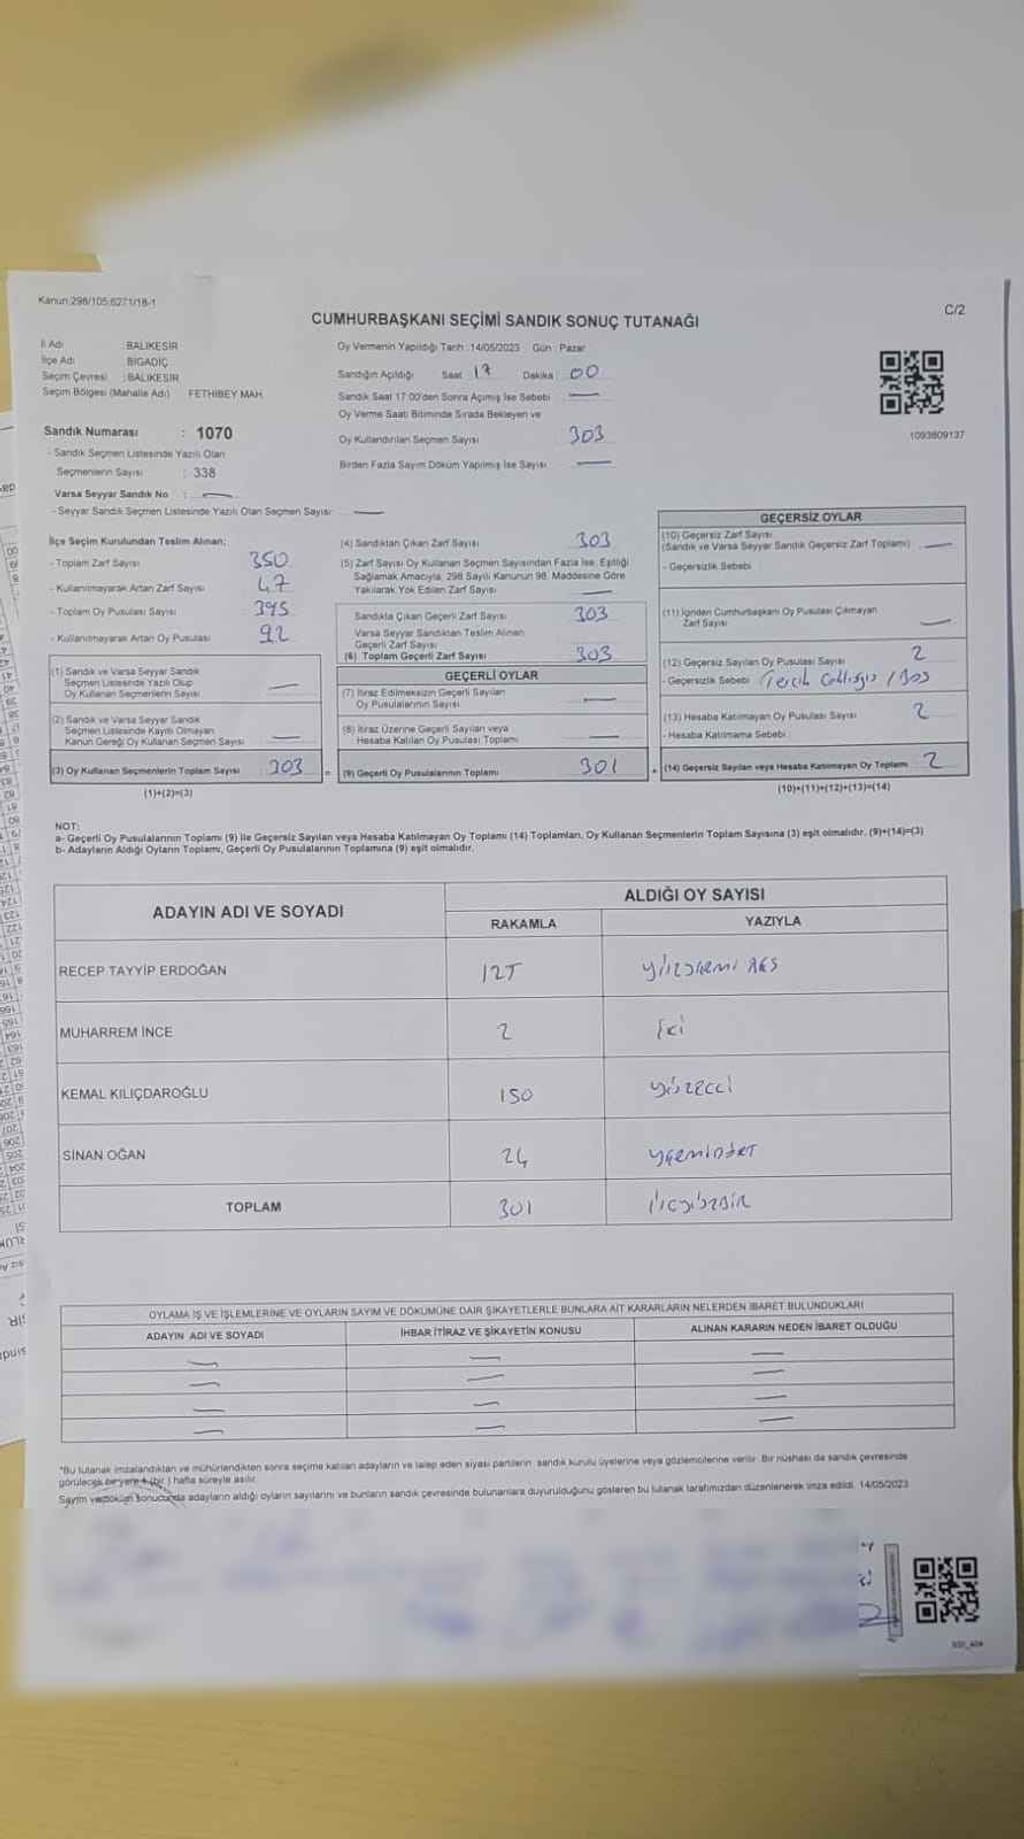 Kanun:298/105;6271/18-1
C/2
CUMHURBAŞKANI SEÇİMİ SANDIK SONUÇ TUTANAĞI
İl Adı : BALIKESİR
İlçe Adı : BİGADİÇ
Seçim Çevresi : BALIKESİR
Seçim Bölgesi (Mahalle Adı) FETHİBEY MAH.
Sandık Numarası : 1070
- Sandık Seçmen Listesinde Yazılı Olan
Seçmenlerin Sayısı : 338
Varsa Seyyar Sandık No : —
- Seyyar Sandık Seçmen Listesinde Yazılı Olan Seçmen Sayısı —
Oy Vermenin Yapıldığı Tarih :14/05/2023 Gün : Pazar
Sandığın Açıldığı Saat 17 Dakika 00
Sandık Saat 17:00'den Sonra Açımış İse Sebebi —
Oy Verme Saati Bitiminde Sırada Bekleyen ve
Oy Kullandırılan Seçmen Sayısı 303
Birden Fazla Sayım Döküm Yapılmış İse Sayısı —
1093609137
İlçe Seçim Kurulundan Teslim Alınan;
- Toplam Zarf Sayısı 350
- Kullanılmayarak Artan Zarf Sayısı 47
- Toplam Oy Pusulası Sayısı 395
- Kullanılmayarak Artan Oy Pusulası 92
(1) Sandık ve Varsa Seyyar Sandık
Seçmen Listesinde Yazılı Olup
Oy Kullanan Seçmenlerin Sayısı —
(2) Sandık ve Varsa Seyyar Sandık
Seçmen Listesinde Kayıtlı Olmayan
Kanun Gereği Oy Kullanan Seçmen Sayısı —
(3) Oy Kullanan Seçmenlerin Toplam Sayısı 303
(1)+(2)=(3)
(4) Sandıktan Çıkan Zarf Sayısı 303
(5) Zarf Sayısı Oy Kullanan Seçmen Sayısından Fazla İse, Eşitliği
Sağlamak Amacıyla, 298 Sayılı Kanunun 98. Maddesine Göre
Yakılarak Yok Edilen Zarf Sayısı —
Sandıkta Çıkan Geçerli Zarf Sayısı 303
Varsa Seyyar Sandıktan Teslim Alınan
Geçerli Zarf Sayısı
(6) Toplam Geçerli Zarf Sayısı 303
GEÇERLİ OYLAR
(7) İtiraz Edilmeksizin Geçerli Sayılan
Oy Pusulalarının Sayısı —
(8) İtiraz Üzerine Geçerli Sayılan veya
Hesaba Katılan Oy Pusulası Toplamı —
= (9) Geçerli Oy Pusulalarının Toplamı 301
GEÇERSİZ OYLAR
(10) Geçersiz Zarf Sayısı
(Sandık ve Varsa Seyyar Sandık Geçersiz Zarf Toplamı) —
- Geçersizlik Sebebi
(11) İçinden Cumhurbaşkanı Oy Pusulası Çıkmayan
Zarf Sayısı —
(12) Geçersiz Sayılan Oy Pusulası Sayısı 2
- Geçersizlik Sebebi
(13) Hesaba Katılmayan Oy Pusulası Sayısı 2
- Hesaba Katılmama Sebebi
+ (14) Geçersiz Sayılan veya Hesaba Katılmayan Oy Toplamı 2
(10)+(11)+(12)+(13)=(14)
NOT:
a- Geçerli Oy Pusulalarının Toplamı (9) ile Geçersiz Sayılan veya Hesaba Katılmayan Oy Toplamı (14) Toplamları, Oy Kullanan Seçmenlerin Toplam Sayısına (3) eşit olmalıdır. (9)+(14)=(3)
b- Adayların Aldığı Oyların Toplamı, Geçerli Oy Pusulalarının Toplamına (9) eşit olmalıdır.
ADAYIN ADI VE SOYADI ALDIĞI OY SAYISI
RAKAMLA YAZIYLA
RECEP TAYYİP ERDOĞAN 125
MUHARREM İNCE 2 iki
KEMAL KILIÇDAROĞLU 150 yüzelli
SİNAN OĞAN 24
TOPLAM 301 üçyüzbir
OYLAMA İŞ VE İŞLEMLERİNE VE OYLARIN SAYIM VE DÖKÜMÜNE DAİR ŞİKAYETLERLE BUNLARA AİT KARARLARIN NELERDEN İBARET BULUNDUKLARI
ADAYIN ADI VE SOYADI İHBAR İTİRAZ VE ŞİKAYETİN KONUSU ALINAN KARARIN NEDEN İBARET OLDUĞU
— — —
— — —
— — —
— — —
*Bu tutanak imzalandıktan ve mühürlendikten sonra seçime katılan adayların ve talep eden siyasi partilerin sandık kurulu üyelerine veya gözlemcilerine verilir. Bir nüshası da sandık çevresinde
görülecek bir yere 1 (bir) hafta süreyle asılır.
Sayım ve döküm sonucunda adayların aldığı oyların sayılarını ve bunların sandık çevresinde bulunanlara duyurulduğunu gösteren bu tutanak tarafımızdan düzenlenerek imza edildi. 14/05/2023